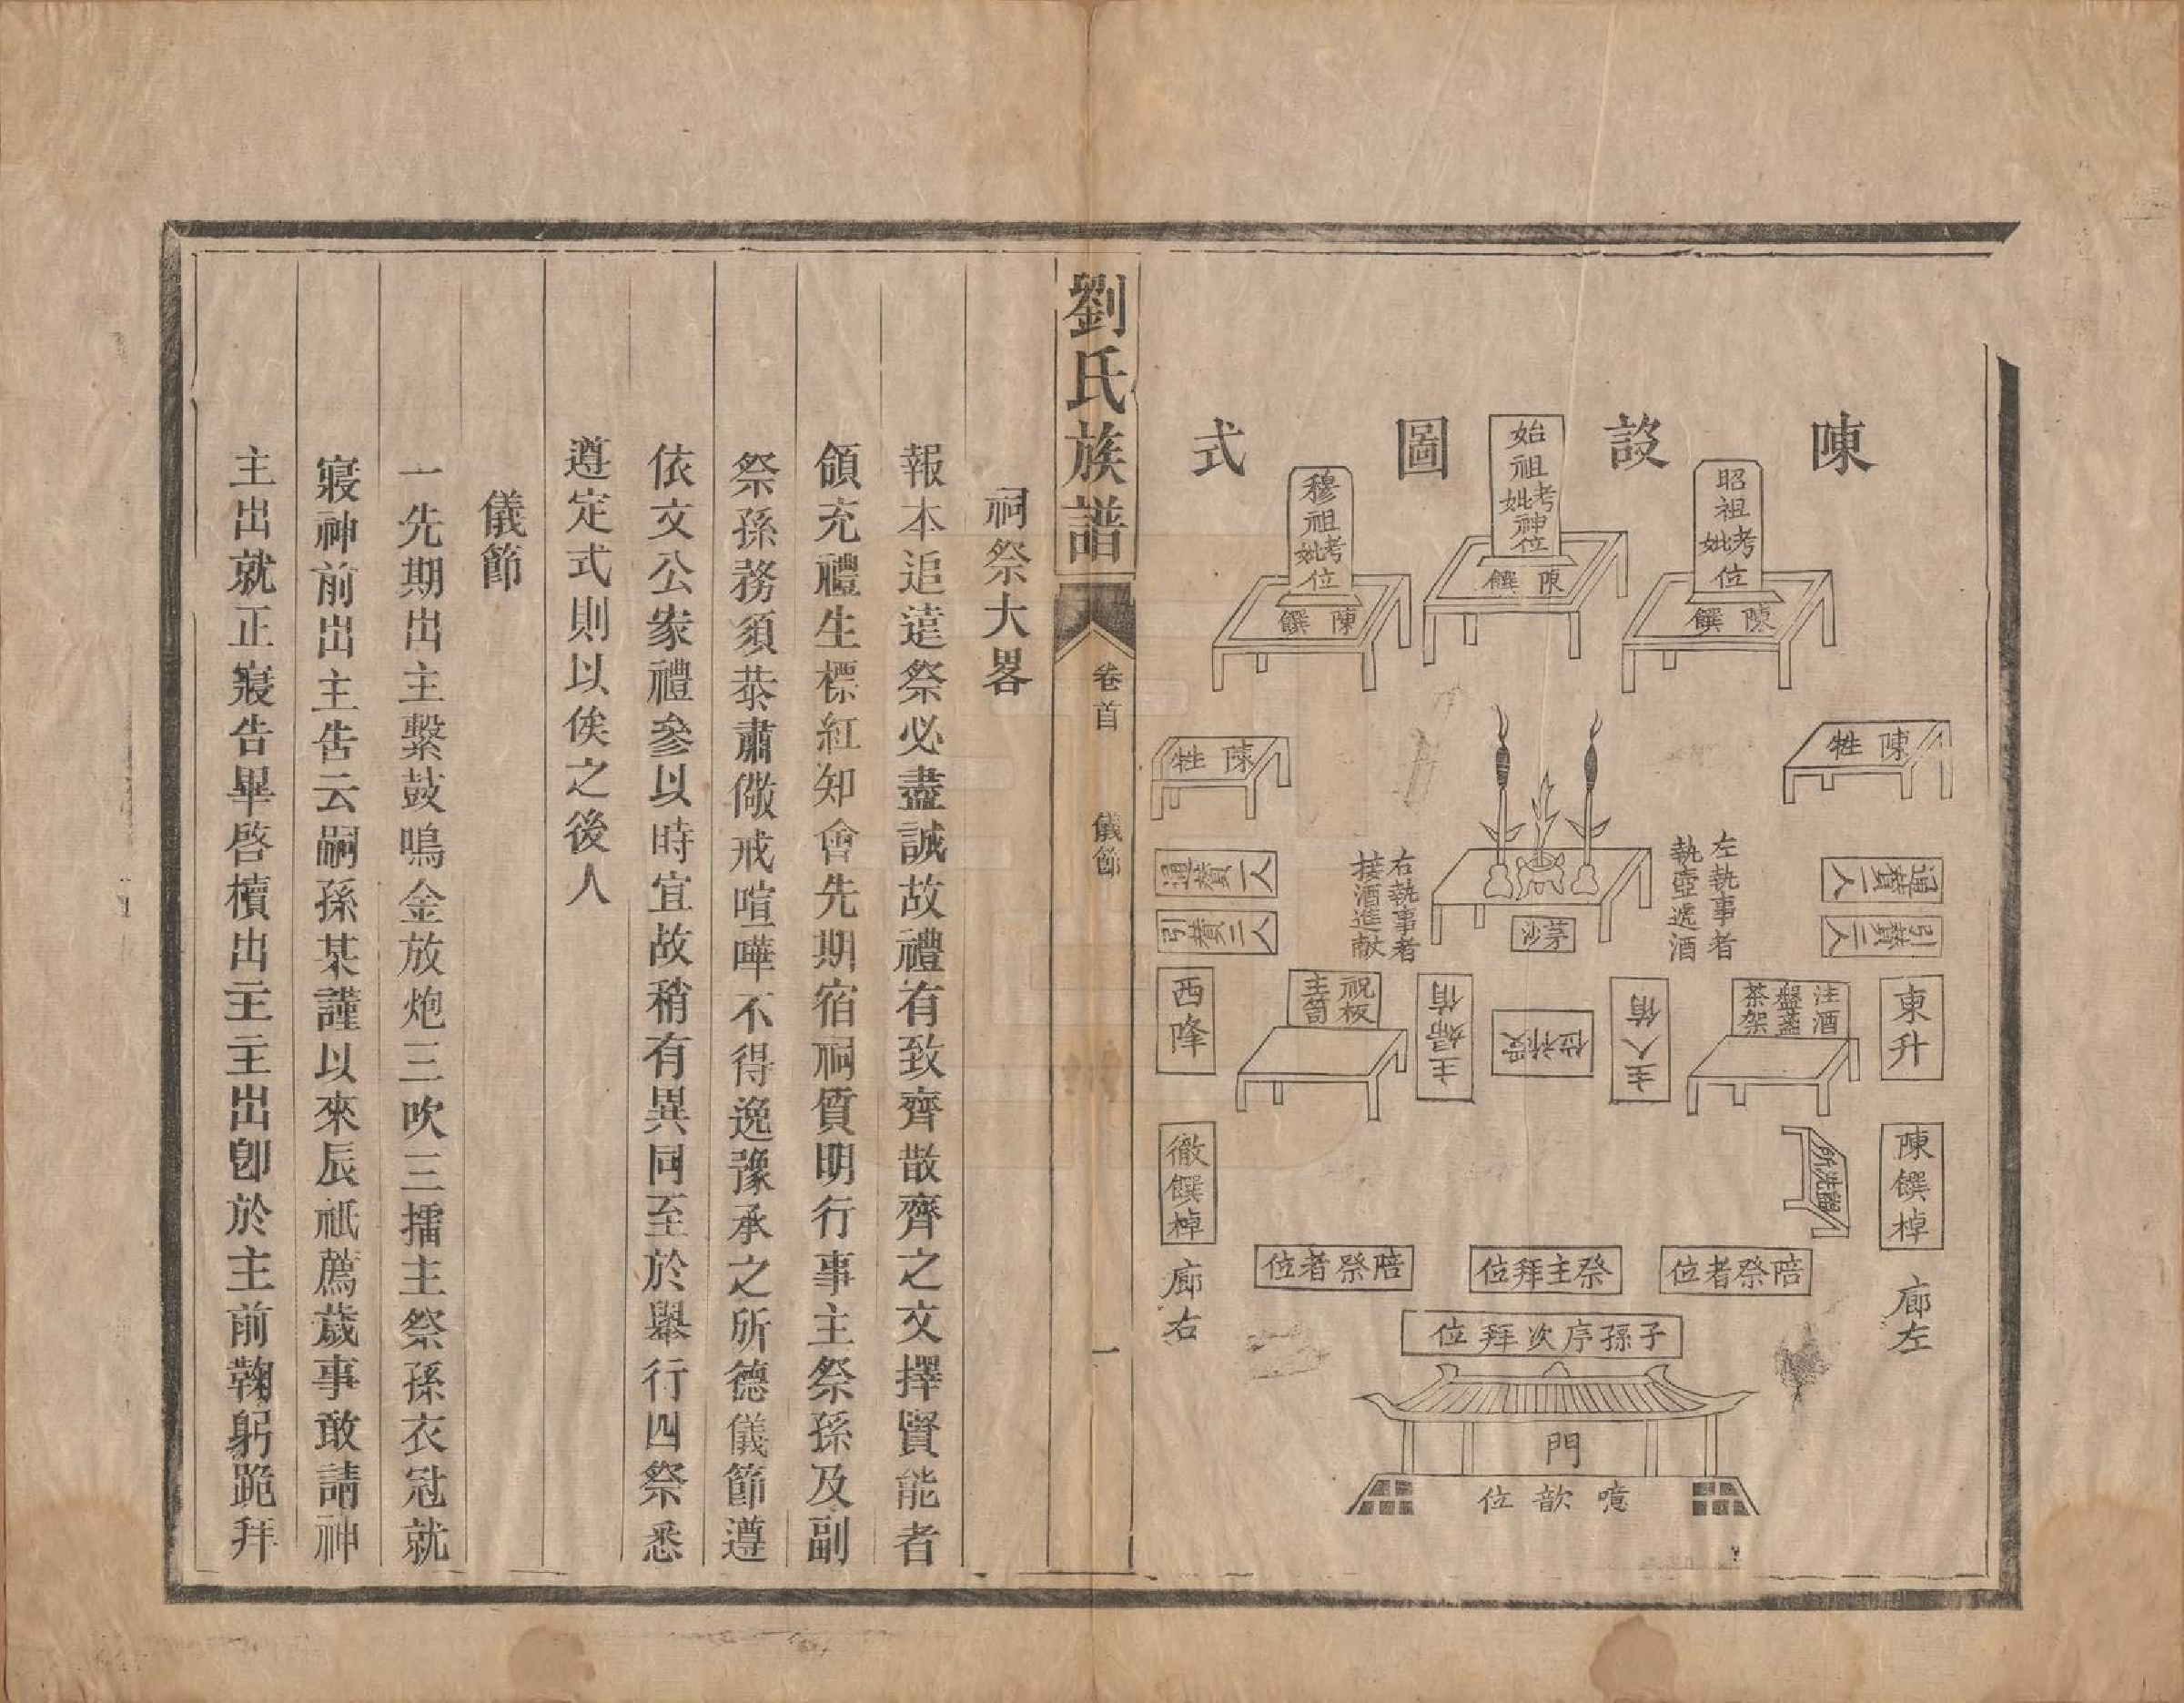 陳設圖式
昭祖考妣位
始祖考妣神位
穆祖考妣位
陳饌
陳饌
陳饌
陳牲
陳牲
左執事者
執壺遞酒
右執事者
接酒進献
通贊一人
引贊二人
通贊一人
引贊二人
茅沙
東升
注酒
盤盞
茶架
主人侑
受祚位
主婦侑
祝板
主笥
西降
陳饌棹
盥洗所
徹饌棹
廊左
廊右
陪祭者位
祭主拜位
陪祭者位
子孫序次拜位
門
噫歆位
劉氏族譜
卷首
儀節
一
祠祭大畧
報本追遠祭必盡誠故禮有致齊散齊之文擇賢能者
領充禮生標紅知會先期宿祠質明行事主祭孫及副
祭孫務須恭肅儆戒喧嘩不得逸豫承之所德儀節遵
依文公家禮參以時宜故稍有異同至於舉行四祭悉
遵定式則以俟之後人
儀節
一先期出主繫鼓鳴金放炮三吹三擂主祭孫衣冠就
寢神前出主告云嗣孫某謹以來辰祗薦歲事敢請神
主出就正寢告畢啓櫝出主主出卽於主前鞠躬跪拜